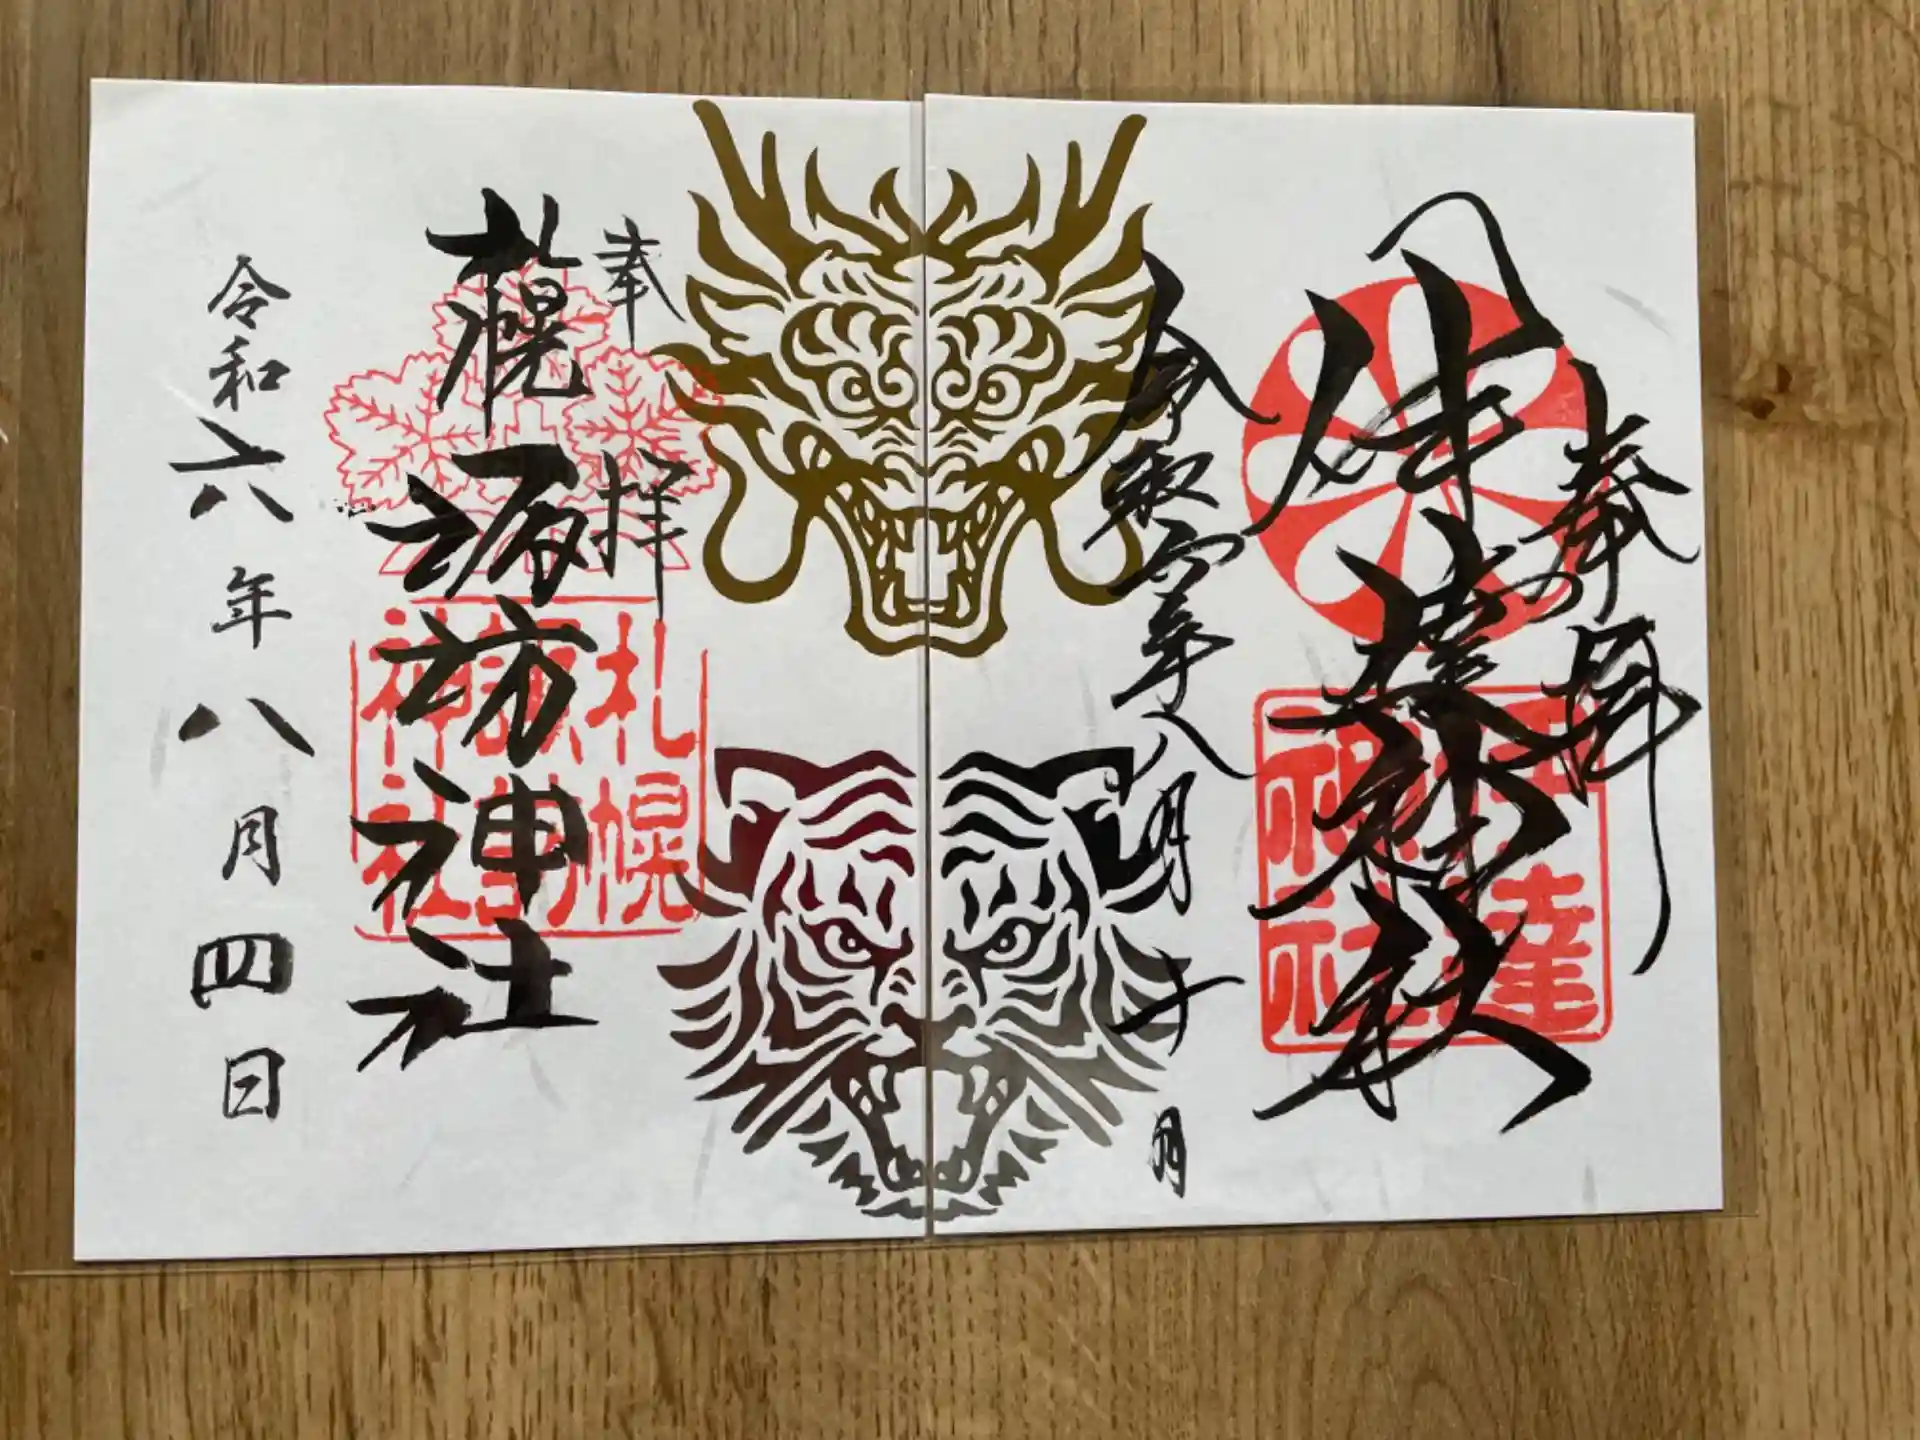 奉拝
伊達神社
伊達神社
令和六年八月十日
奉拝
札幌諏訪神社
札幌
諏訪
神社
令和六年八月四日